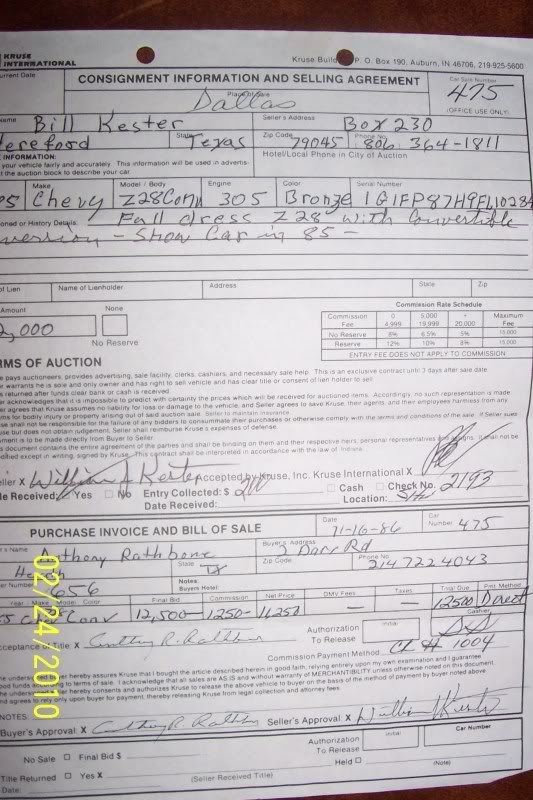 KRUSE
INTERNATIONAL
Kruse Build P. O. Box 190, Auburn, IN 46706, 219-925-5600
urrent Date
CONSIGNMENT INFORMATION AND SELLING AGREEMENT
Car Sale Number
475
(OFFICE USE ONLY)
Place of Sale
Dallas
Name Bill Kester
Seller's Address Box 230
Hereford
State Texas
Zip Code 79045
Phone No. 806 364-1811
INFORMATION:
your vehicle fairly and accurately. This information will be used in advertis-
the auction block to describe your car.
Hotel/Local Phone in City of Auction
Make Model / Body Engine Color Serial Number
85 Chevy Z28 Conv 305 Bronze 1G1FP87H9FL10284
oned or History Details: Full dress Z28 with Convertible
version - Show Car in 85 -
of Lien
Name of Lienholder
Address
State
Zip
Amount
2,000
None
No Reserve
Commission Rate Schedule
Commission Fee 0 4,999 5,000 19,999 + 20,000 Maximum Fee
No Reserve 8% 6.5% 5% 15,000
Reserve 12% 10% 8% 15,000
ENTRY FEE DOES NOT APPLY TO COMMISSION
RMS OF AUCTION
e pays auctioneers, provides advertising, sale facility, clerks, cashiers, and necessary sale help. This is an exclusive contract until 3 days after sale date.
r warrants he is sole and only owner and has right to sell vehicle and has clear title or consent of lien holder to sell.
s returned after funds clear bank or cash is received.
r acknowledges that it is impossible to predict with certainty the prices which will be received for auctioned items. Accordingly, no such representation is made.
or agrees that Kruse assumes no liability for loss or damage to the vehicle, and Seller agrees to save Kruse, their agents, and their employees harmless from any
ms for bodily injury or property arising out of said auction sale. Seller to maintain insurance.
se shall not be responsible for the failure of any bidders to consummate their purchases or otherwise comply with the terms and conditions of the sale. If Seller sues
use but does not obtain judgement, Seller shall reimburse Kruse's expenses of defense.
yment is to be made directly from Buyer to Seller.
s document contains the entire agreement of the parties and shall be binding on them and their respective heirs, personal representatives and assigns. It shall not be
dified except in writing, signed by Kruse. This shall be interpreted in accordance with the law of Indiana.
eller X William J Kester
Accepted by Kruse, Inc. Kruse International X
le Received: Yes No
Entry Collected: $ 200
Cash
Check No. 2193
Date Received:
Location:
PURCHASE INVOICE AND BILL OF SALE
Date 11-16-86
Car Number 475
r's Name Anthony Rathbone
Buyer's Address 2 Dorr Rd
State TX
Zip Code
Phone No. 214 722 4043
er Number 656
Notes:
Buyers Hotel:
Year Make Model Color Final Bid Commission Net Price DMV Fees Taxes Total Due Pmt. Method
85 Chev Conv 12,500 - 1250 - 11,250 - - 12500 Direct
cceptance of Title: X Anthony R. Rathbone
Authorization To Release
Initial
Cashier
Commission Payment Method CK # 1004
e undersigned buyer hereby assures Kruse that I bought the article described herein in good faith, relying entirely upon my own examination and I guarantee
od funds according to terms of sale. I acknowledge that all sales are AS IS and without warranty of MERCHANTIBILITY unless otherwise noted on this document.
e undersigned buyer hereby consents and authorizes Kruse to release the above vehicle to buyer on the basis of the method of payment by buyer noted above
nd agrees to rely only upon buyer for payment, thereby releasing Kruse from legal collection and attorney fees.
NOTES:
Buyer's Approval X Anthony R. Rathbone
Seller's Approval X William J Kester
No Sale Final Bid $
Authorization To Release
Initial
Car Number
Held
(Note)
Title Returned Yes X
(Seller Received Title)
Date:
02/24/2010